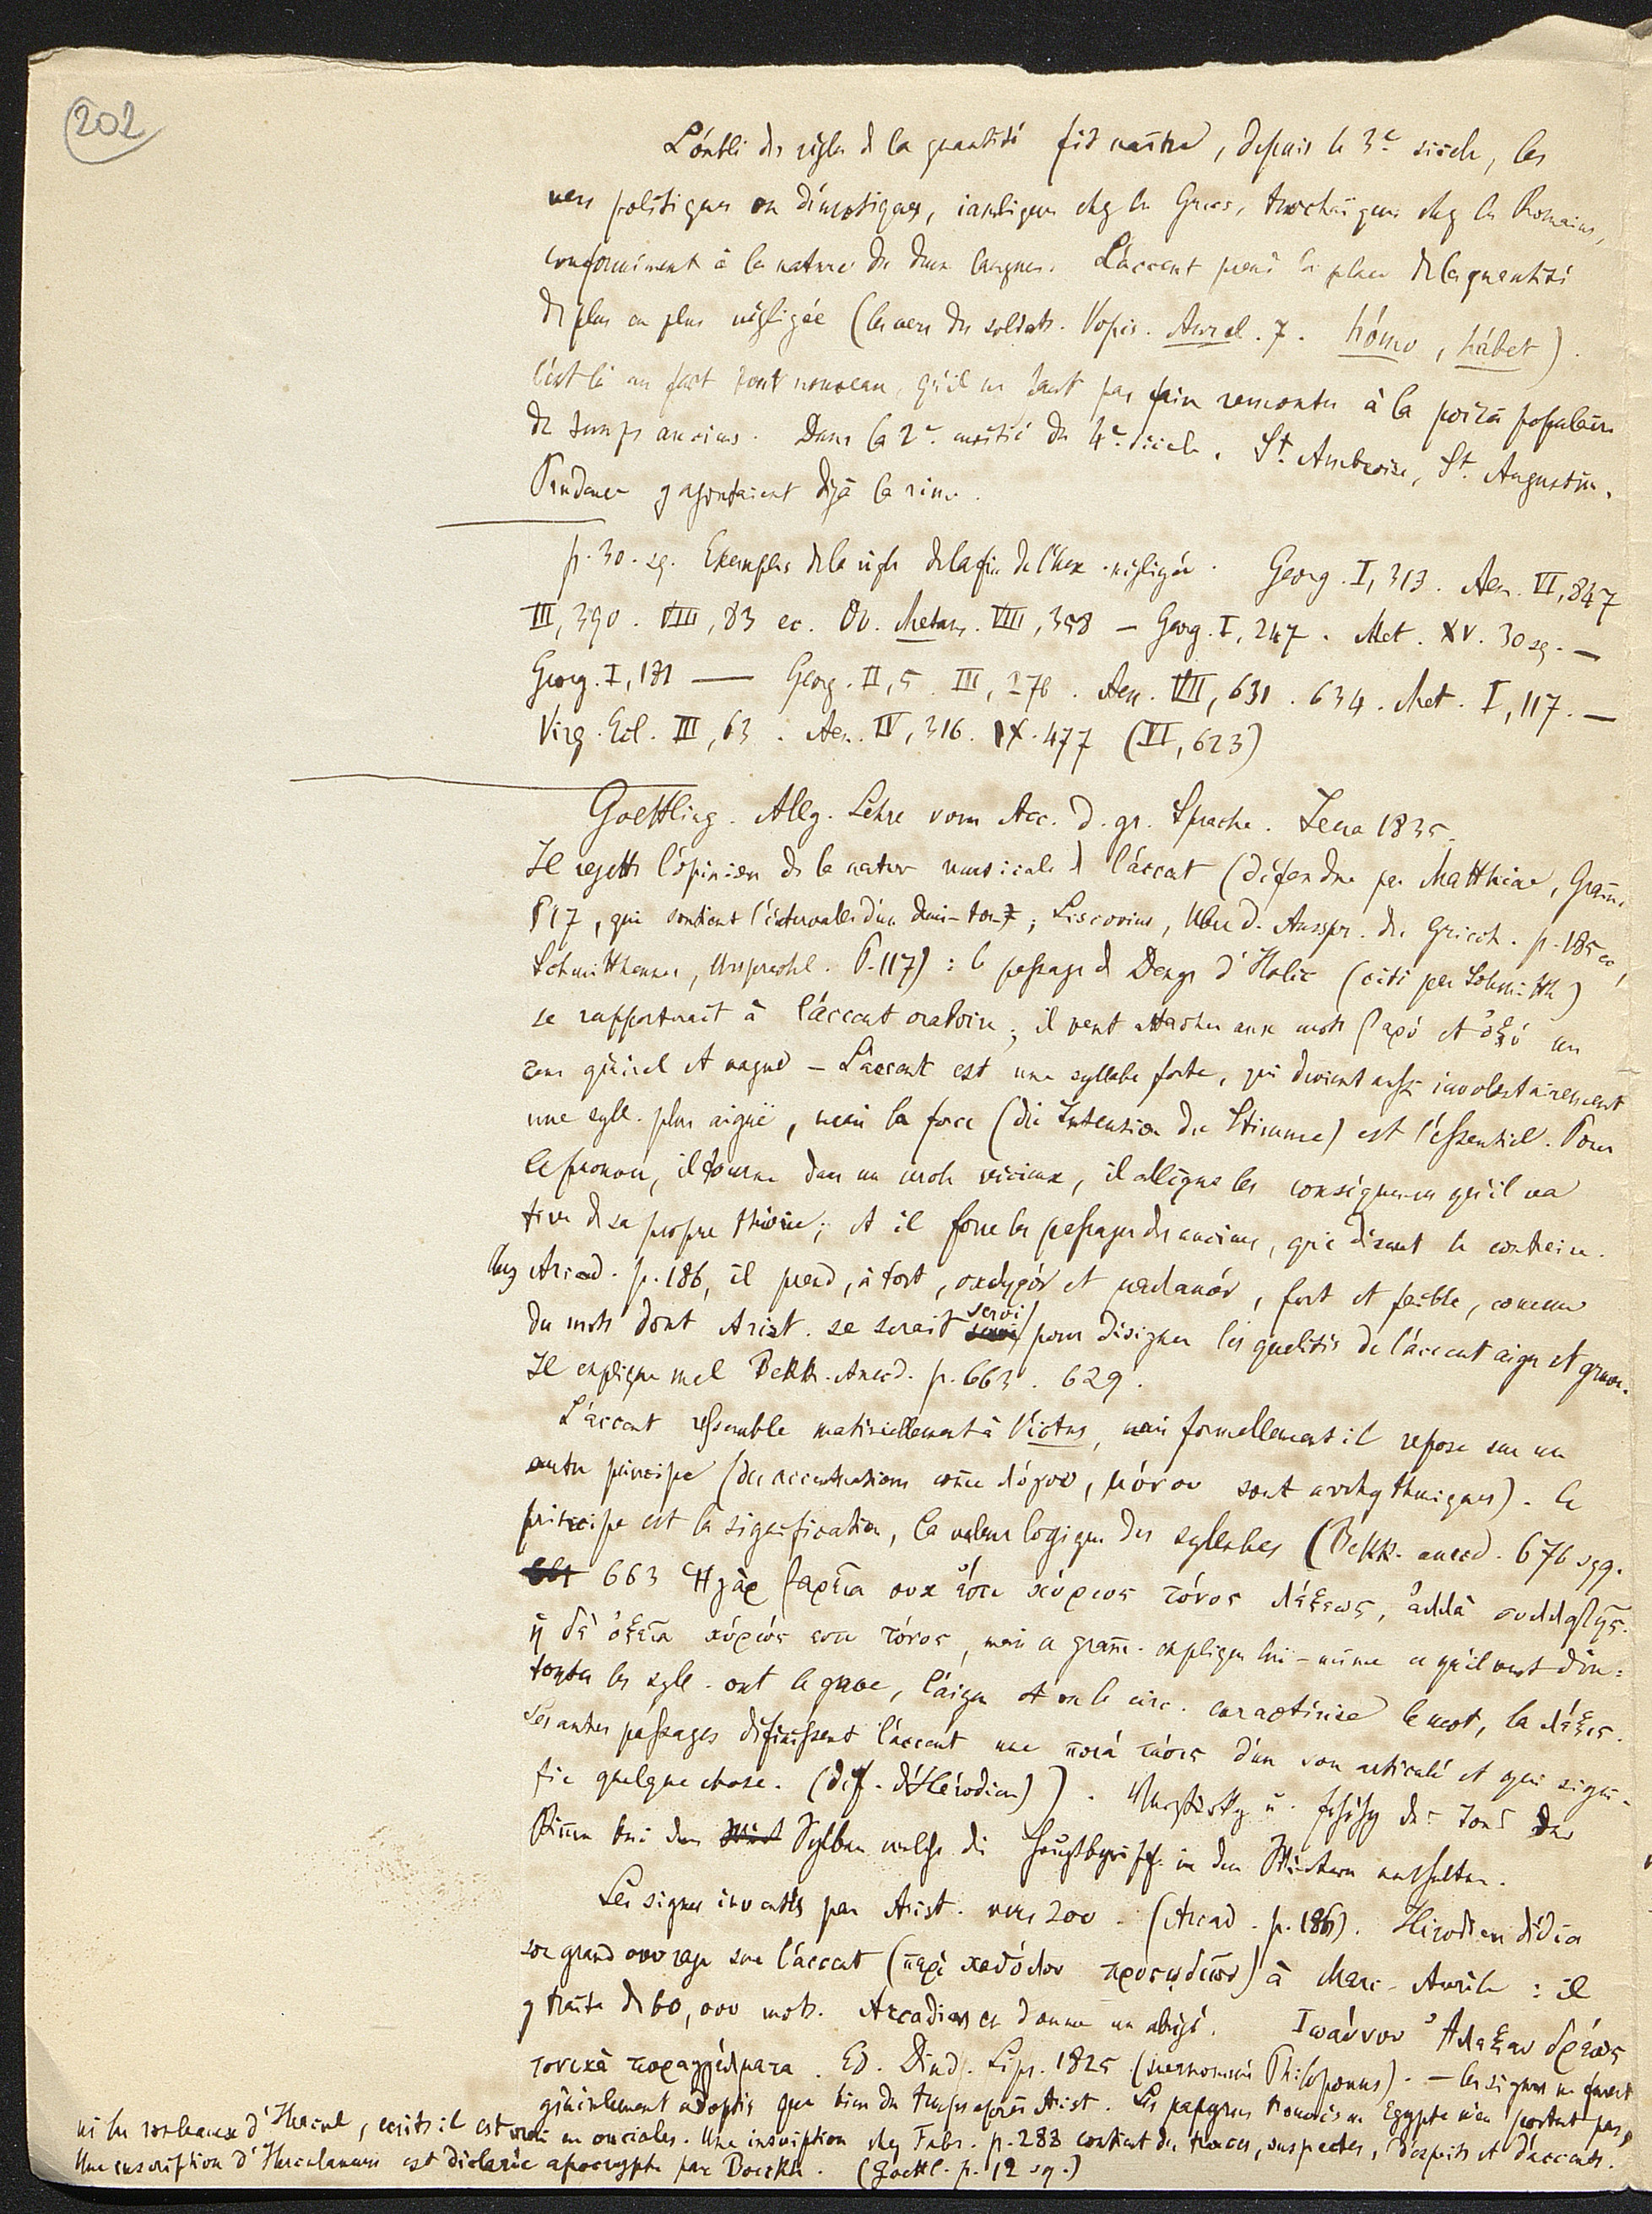 202
L'oubli des règles de la quantité fit naître, depuis le 3e siècle, les
vers politiques ou démotiques, iambiques chez les Grecs, trochaïques chez les Romains,
conformément à la nature des deux langues. L'accent prend la place de la quantité
de plus en plus négligée (les vers des soldats. Vopis. Aurel. 7. hómo, hábet).
C'est là un fait tout nouveau, qu'il ne faut pas faire remonter à la poésie populaire
de temps anciens. Dans la 2e moitié du 4e siècle, St. Ambroise, St. Augustin,
Prudence y ajoutaient déjà la rime.
p. 30. sq. Exemples de la règle de la fin de l'hex. négligée. Georg. I, 313. Aen. VI, 847
III, 390. VIII, 83 ec. Ov. Metam. VIII, 358 — Georg. I, 247. Met. XV. 30 sq. —
Georg. I, 181 — Georg. II, 5. III, 276. Aen. VII, 631. 634. Met. I, 117. —
Virg. Ecl. III, 63. Aen. IV, 316. IX. 477 (VI, 623)
Goettling. Allg. Lehre vom Acc. d. gr. Sprache. Jena 1835.
Il rejette l'opinion de la nature musicale de l'accent (défendue par Matthiae, Gram.
§17, qui soutient l'intervalle d'un demi-ton; Liscovius, Über d. Ausspr. des Griech. p. 185 ec,
Schmitthenner, Ursprachl. P. 117) : le passage de Denys d'Halic (cité par Schmitth)
se rapporterait à l'accent oratoire; il veut attacher aux mots βαρύ et ὀξύ un
sens général et vague — L'accent est une syllabe forte, qui devient aussi involontairement
une syll. plus aiguë, mais la force (die Intension der Stimme) est l'essentiel. Pour
le prouver, il tourne dans un cercle vicieux, il allègue les conséquences qu'il va
tirer de sa propre théorie; et il force les passages des anciens, qui disent le contraire.
Chez Arcad. p. 186, il prend, à tort, σκληρόν et μαλακόν, fort et faible, comme
des mots dont Arist. se serait servi pour désigner les qualités de l'accent aigu et grave.
Il explique mal Bekk. Anecd. p. 663. 629.
L'accent ressemble matériellement à l'ictus, mais formellement il repose sur un
autre principe (des accentuations comme λόγου, μόνου sont arrhythmiques). Ce
principe est la signification, la valeur logique des syllabes (Bekk. anecd. 676 sqq.
663 Ἡ γὰρ βαρεῖα οὐκ ἔστι κύριος τόνος λέξεως, ἀλλὰ συλλαβῆς.
ἡ δὲ ὀξεῖα κύριός εστι τόνος, mais ce gramm. explique lui-même ce qu'il veut dire :
toutes les syll. ont le grave, l'aigu et ou le circ. caractérise le mot, la λέξις.
Les autres passages définissent l'accent une ποιά τάσις d'un son articulé et qui signi-
fie quelque chose. (déf. d'Hérodien)). u. des Tons der
Stimme bei den Sylben welche die Hauptbegriffe in den Wörtern enthalten.
Les signes inventés par Arist. vers 200. (Arcad. p. 186). Hérodien dédia
son grand ouvrage sur l'accent (περὶ καθόλου προσῳδιῶν) à Marc-Aurèle : il
y traita de 60,000 mots. Arcadius en donne un abrégé. Ἰωάννου Ἀλεξανδρέως
τονικὰ παραγγέλματα. Ed. Dind. Lips. 1825 (surnommé Philoponus). — Les signes ne furent
généralement adoptés que bien du temps après Arist. Les papyrus trouvés en Egypte n'en portent pas,
ni les rouleaux d'Hercul, écrits il est vrai en onciales. Une inscription chez Fabr. p. 288 contient des traces, suspectes, d'esprits et d'accents.
Une inscription d'Herculanum est déclarée apocryphe par Boeckh. (Goettl. p. 12 sq.)